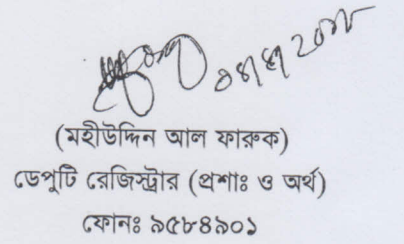 (মহীউদ্দিন আল ফারুক)
ডেপুটি রেজিস্ট্রার (প্রশাঃ ও অর্থ)
ফোনঃ ৯৫৮৪৯০১